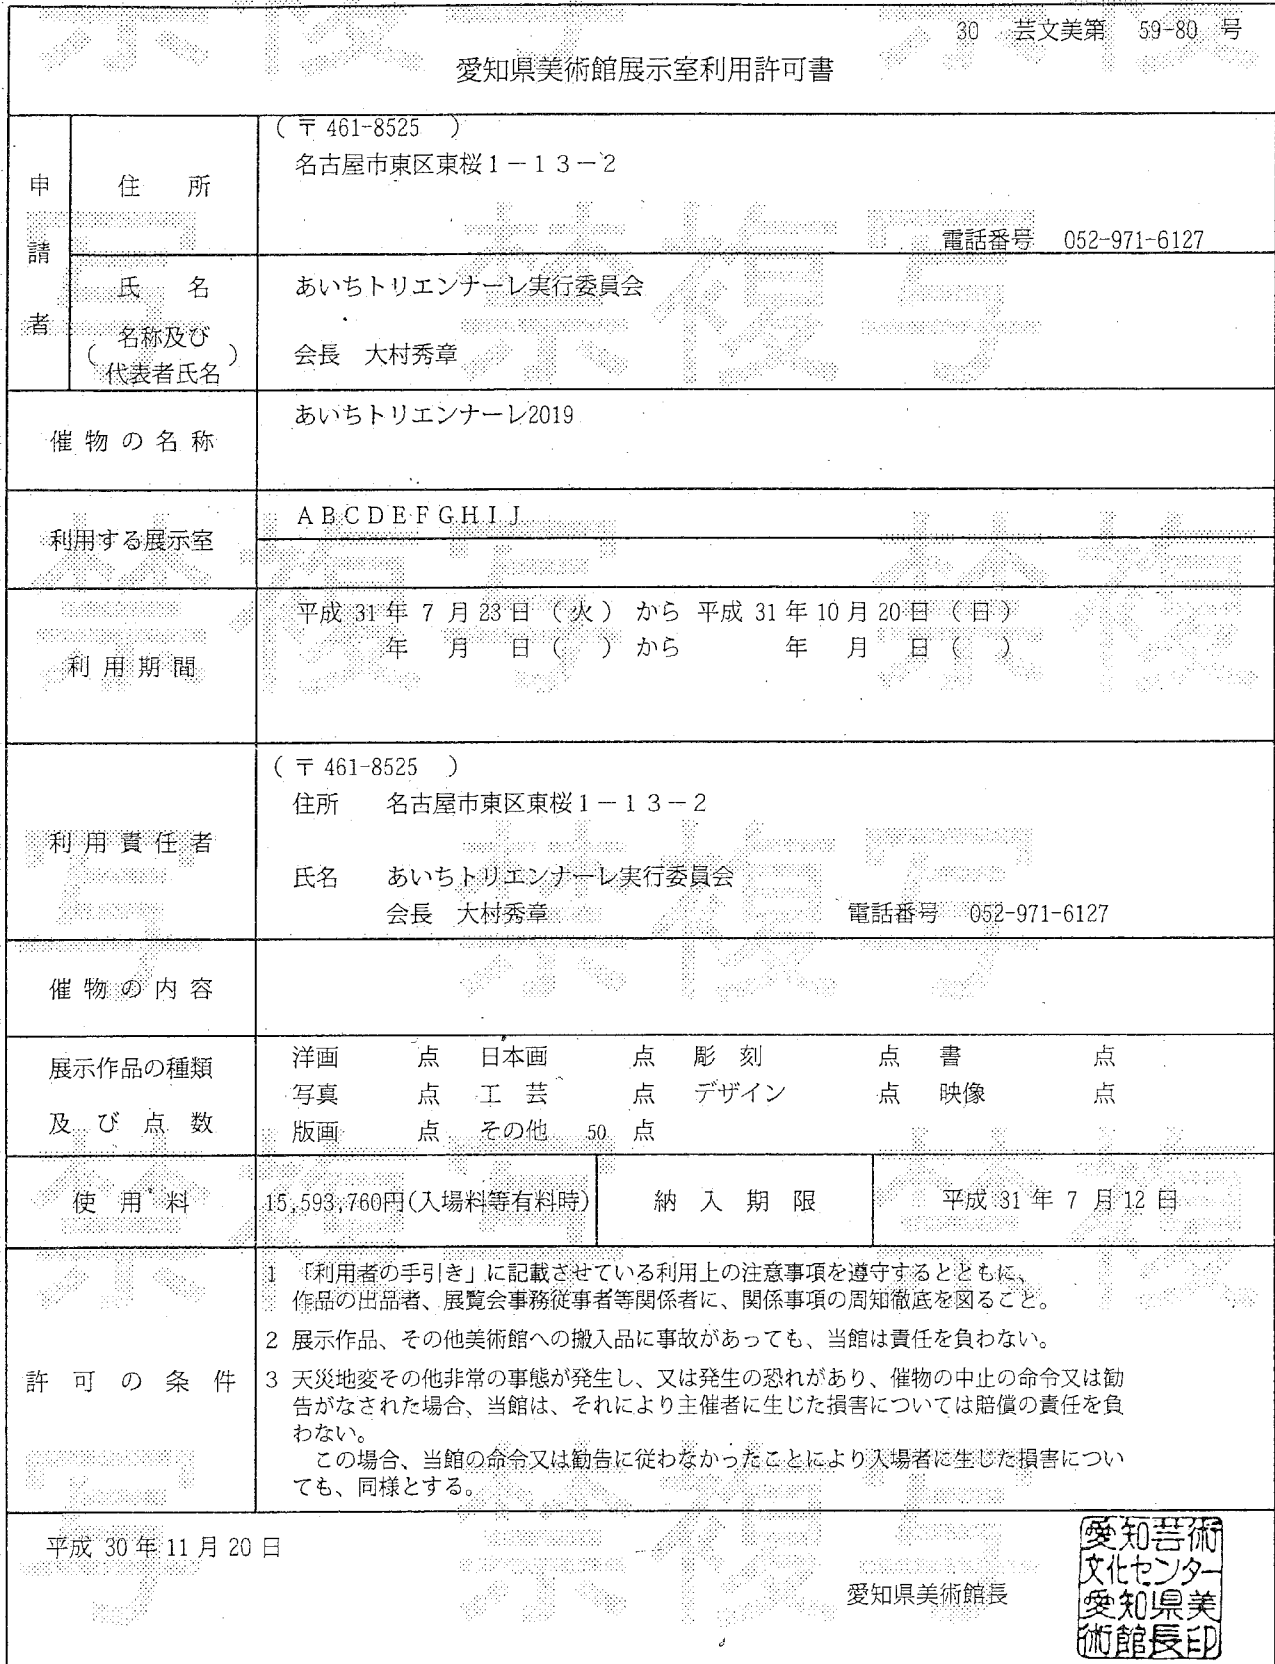 30 芸文美第 59-80 号
愛知県美術館展示室利用許可書
申請者
住所
(〒461-8525 )
名古屋市東区東桜1－13－2
電話番号 052-971-6127
氏名
(名称及び
代表者氏名)
あいちトリエンナーレ実行委員会
会長 大村秀章
催物の名称
あいちトリエンナーレ2019
利用する展示室
ABCDEFGHIJ
利用期間
平成 31 年 7 月 23 日 (火) から 平成 31 年 10 月 20 日 (日)
年 月 日 ( ) から 年 月 日 ( )
利用責任者
(〒461-8525 )
住所 名古屋市東区東桜1－13－2
氏名 あいちトリエンナーレ実行委員会
会長 大村秀章 電話番号 052-971-6127
催物の内容
展示作品の種類
及び点数
洋画 点 日本画 点 彫刻 点 書 点
写真 点 工芸 点 デザイン 点 映像 点
版画 点 その他 50 点
使用料
15,593,760円(入場料等有料時)
納入期限
平成 31 年 7 月 12 日
許可の条件
1 「利用者の手引き」に記載させている利用上の注意事項を遵守するとともに、
作品の出品者、展覧会事務従事者等関係者に、関係事項の周知徹底を図ること。
2 展示作品、その他美術館への搬入品に事故があっても、当館は責任を負わない。
3 天災地変その他非常の事態が発生し、又は発生の恐れがあり、催物の中止の命令又は勧
告がなされた場合、当館は、それにより主催者に生じた損害については賠償の責任を負
わない。
この場合、当館の命令又は勧告に従わなかったことにより入場者に生じた損害につい
ても、同様とする。
平成 30 年 11 月 20 日
愛知県美術館長
愛知芸術
文化センター
愛知県美
術館長印
禁複写